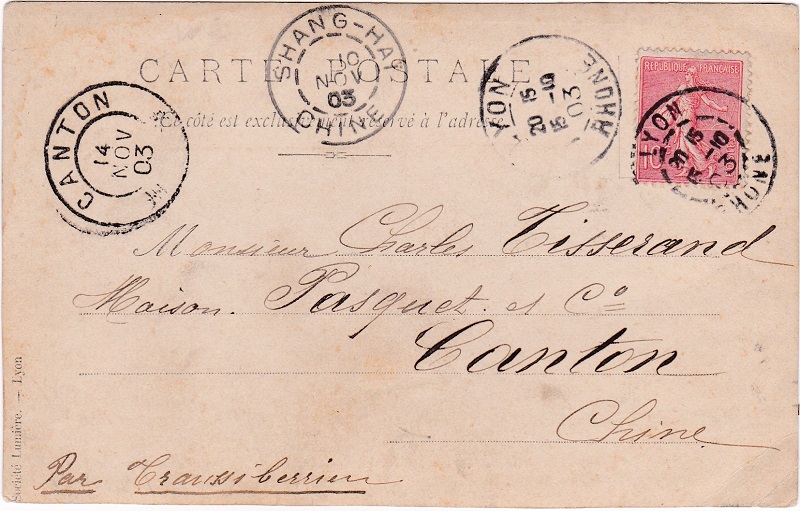 SHANG-HAI
10
NOV
03
CHINE
LYON
20 15
15 -10
03
RHONE
REPUBLIQUE FRANÇAISE
10
LYON
20 15
15 -10
03
RHONE
CARTE POSTALE
Ce côté est exclusivement réservé à l'adresse
CANTON
14
NOV
03
Monsieur Charles Tisserand
Maison. Pasquet. et Cº
Canton
Chine
Par Transsiberien
Société Lumière. — Lyon